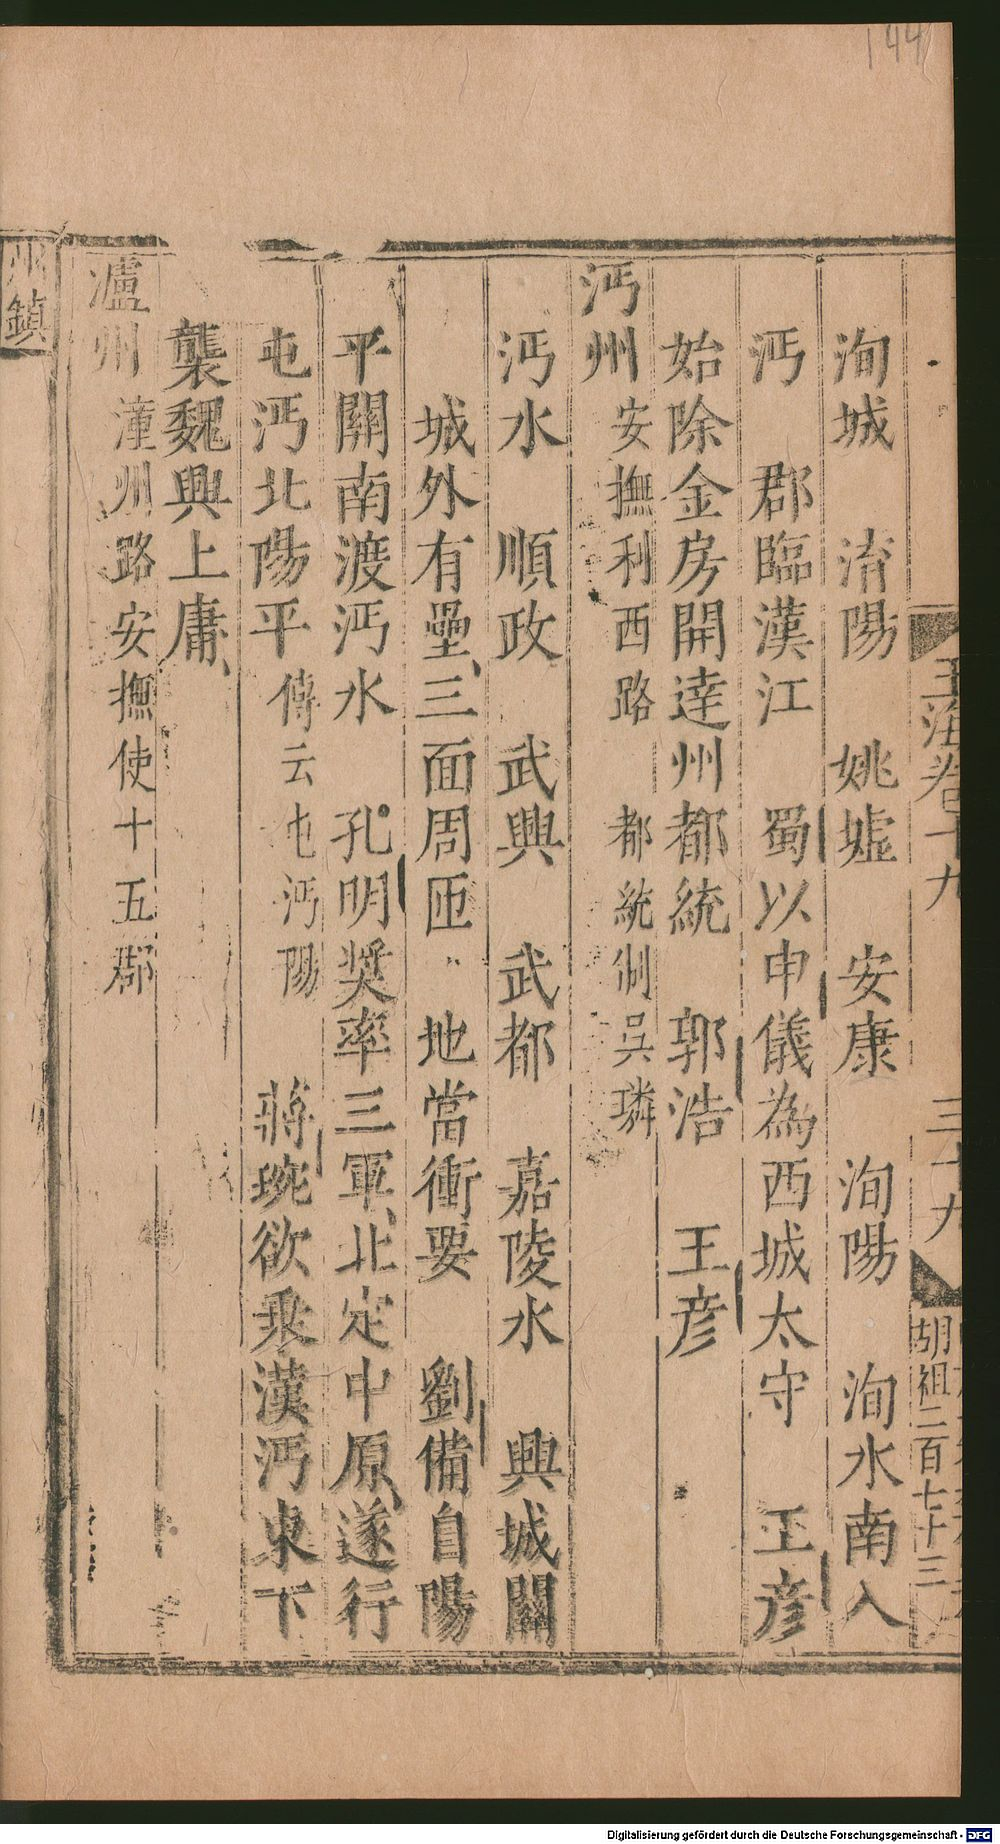 144
玉海卷十九 三十九 胡祖二百七十三
洵城 淯陽 姚墟 安康 洵陽 洵水南入
沔 郡臨漢江 蜀以申儀為西城太守 王彦
始除金房開達州都統 郭浩 王彦
沔州 安撫利西路 都統制吳璘
沔水 順政 武興 武都 嘉陵水 興城關
城外有壘三面周匝 地當衝要 劉備自陽
平關南渡沔水 孔明奬率三軍北定中原遂行
屯沔北陽平 傳云屯沔陽 蔣琬欲乘漢沔東下
襲魏興上庸
瀘州 潼州路安撫使十五郡
州鎮
Digitalisierung gefördert durch die Deutsche Forschungsgemeinschaft - DFG